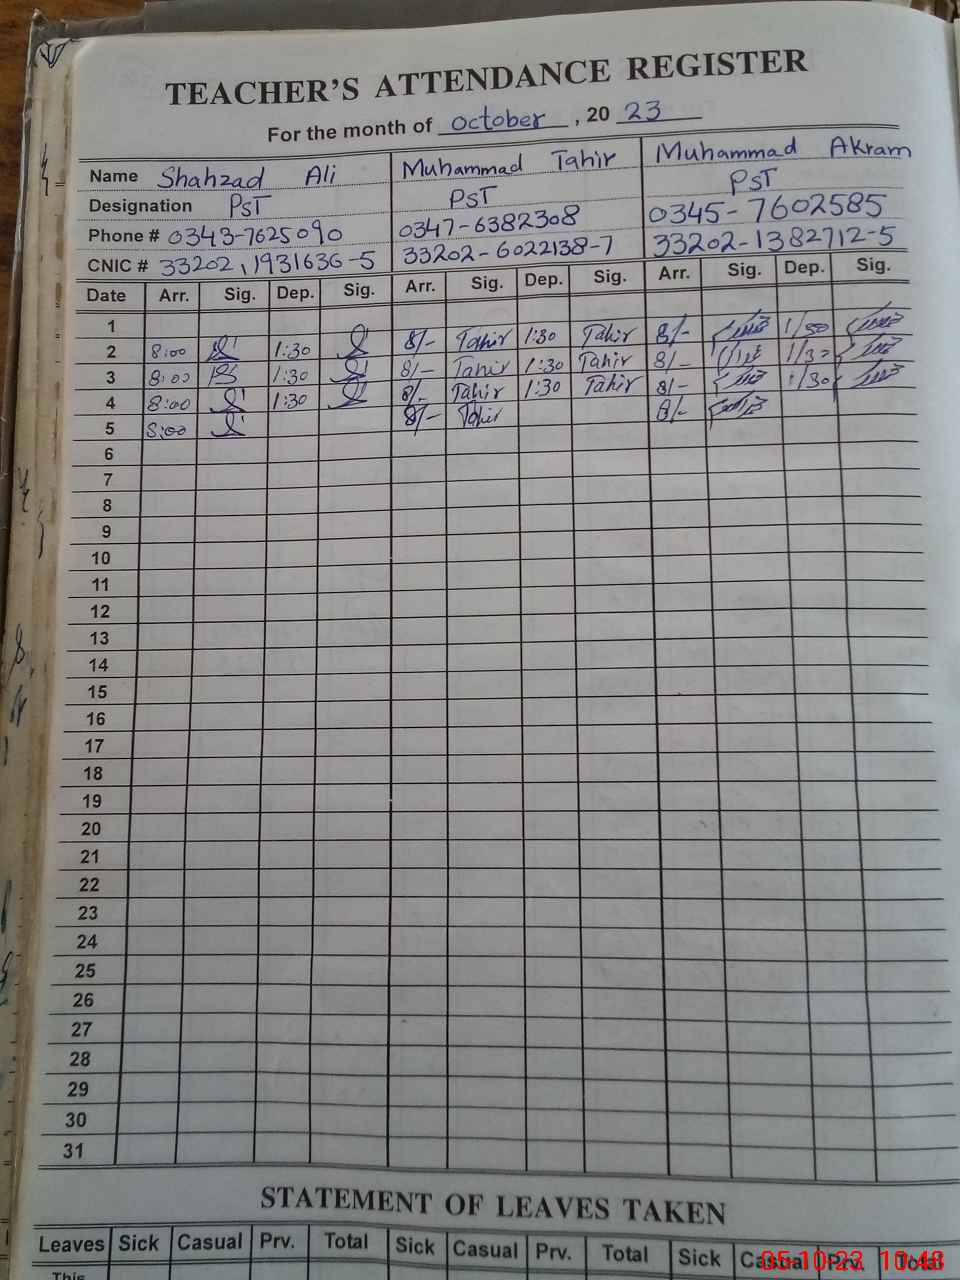 TEACHER'S ATTENDANCE REGISTER
For the month of October, 20 23
Name Shahzad Ali Muhammad Tahir Muhammad Akram
Designation PST PST PST
Phone # 0343-7625090 0347-6382308 0345-7602585
CNIC # 33202,1931636-5 33202-6022138-7 33202-1382712-5
Date Arr. Sig. Dep. Sig. Arr. Sig. Dep. Sig. Arr. Sig. Dep. Sig.
1
2 8:00 1:30 8/- Tahir 1:30 Tahir 8/- 1/30
3 8:00 1:30 8/- Tahir 1:30 Tahir 8/- 1/30
4 8:00 1:30 8/- Tahir 1:30 Tahir 8/- 1/30
5 8:00 8/- Tahir 8/-
6
7
8
9
10
11
12
13
14
15
16
17
18
19
20
21
22
23
24
25
26
27
28
29
30
31
STATEMENT OF LEAVES TAKEN
Leaves Sick Casual Prv. Total Sick Casual Prv. Total Sick Casual Prv. Total
This
05-10-23 10:48